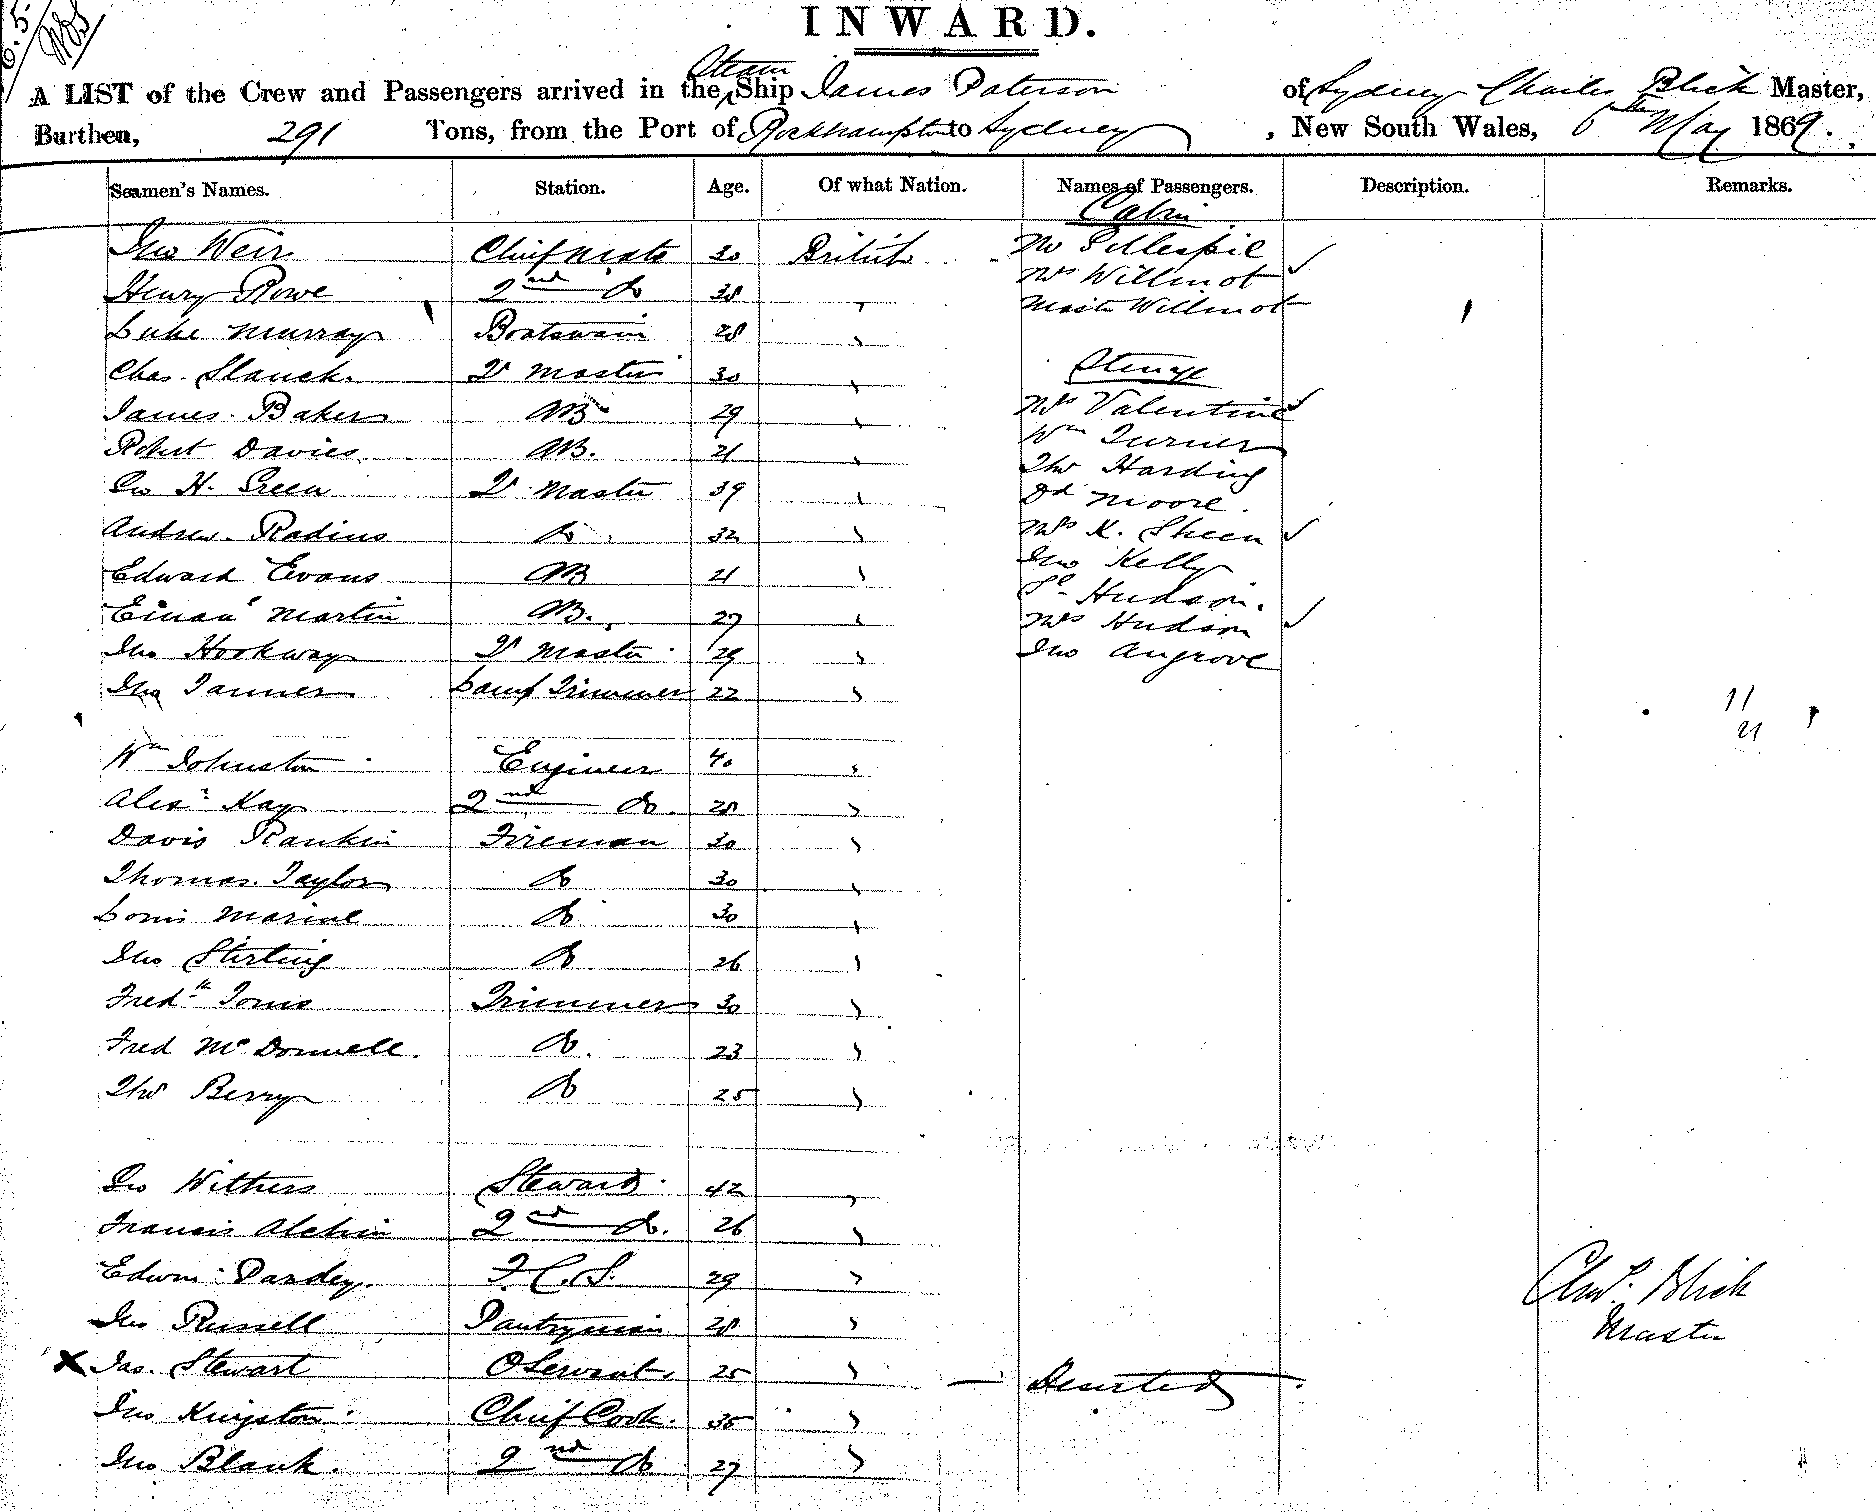 INWARD.
A LIST of the Crew and Passengers arrived in the Steam Ship James Paterson of Sydney Charles Blick Master,
Burthen, 291 Tons, from the Port of Rockhampton to Sydney, New South Wales, 6th May 1869.
Seamen's Names. Station. Age. Of what Nation. Names of Passengers. Description. Remarks.
Cabin
Jno Weir Chief Mate 30 British Mr Gillespie
Mrs Willmot ✓
Henry Rowe 2nd Do 38 "
Mastr Willmot
Luke Murray Boatswain 28 "
Chas. Slauck. Qr Master 30 " Steerage
James Baker AB 29 " Mrs Valentine ✓
Wm Turner
Robert Davies AB. 21 "
Thos Harding
Geo H. Green Qr Master 39 " Dd Moore.
Andrew Radius Do. 32 " Mrs K. Sheen ✓
Jno Kelly
Edward Evans AB 21 "
Hudson.
Martin AB. 27 " Mrs Hudson ✓
Jno Hookway Qr Master 29 " Jno Angrove
Jno Tanner Lamp Trimmer 22 "
11
21
Wm Johnston Engineer 40 "
Alexr Kay 2nd Do. 28 "
Davis Rankin Fireman 30 "
Thomas Taylor Do 30 "
Louis Marine Do 30 "
Jno Stirling Do 26 "
Fredk Jones Trimmer 30 "
Fred McDonnell. Do. 23 "
Thos Berry Do 25 "
Geo Withers Steward. 42 "
Francis Alchin 2nd Do. 26 "
Edwin Pardey. F.C.S. 29 "
Chas. Blick
Jno Russell Pantryman 28 "
Master
X Jas. Stewart O Servant. 25 " — Deserted
Jno Kingston Chief Cook. 35 "
Jno Blank. 2nd Do 27 "